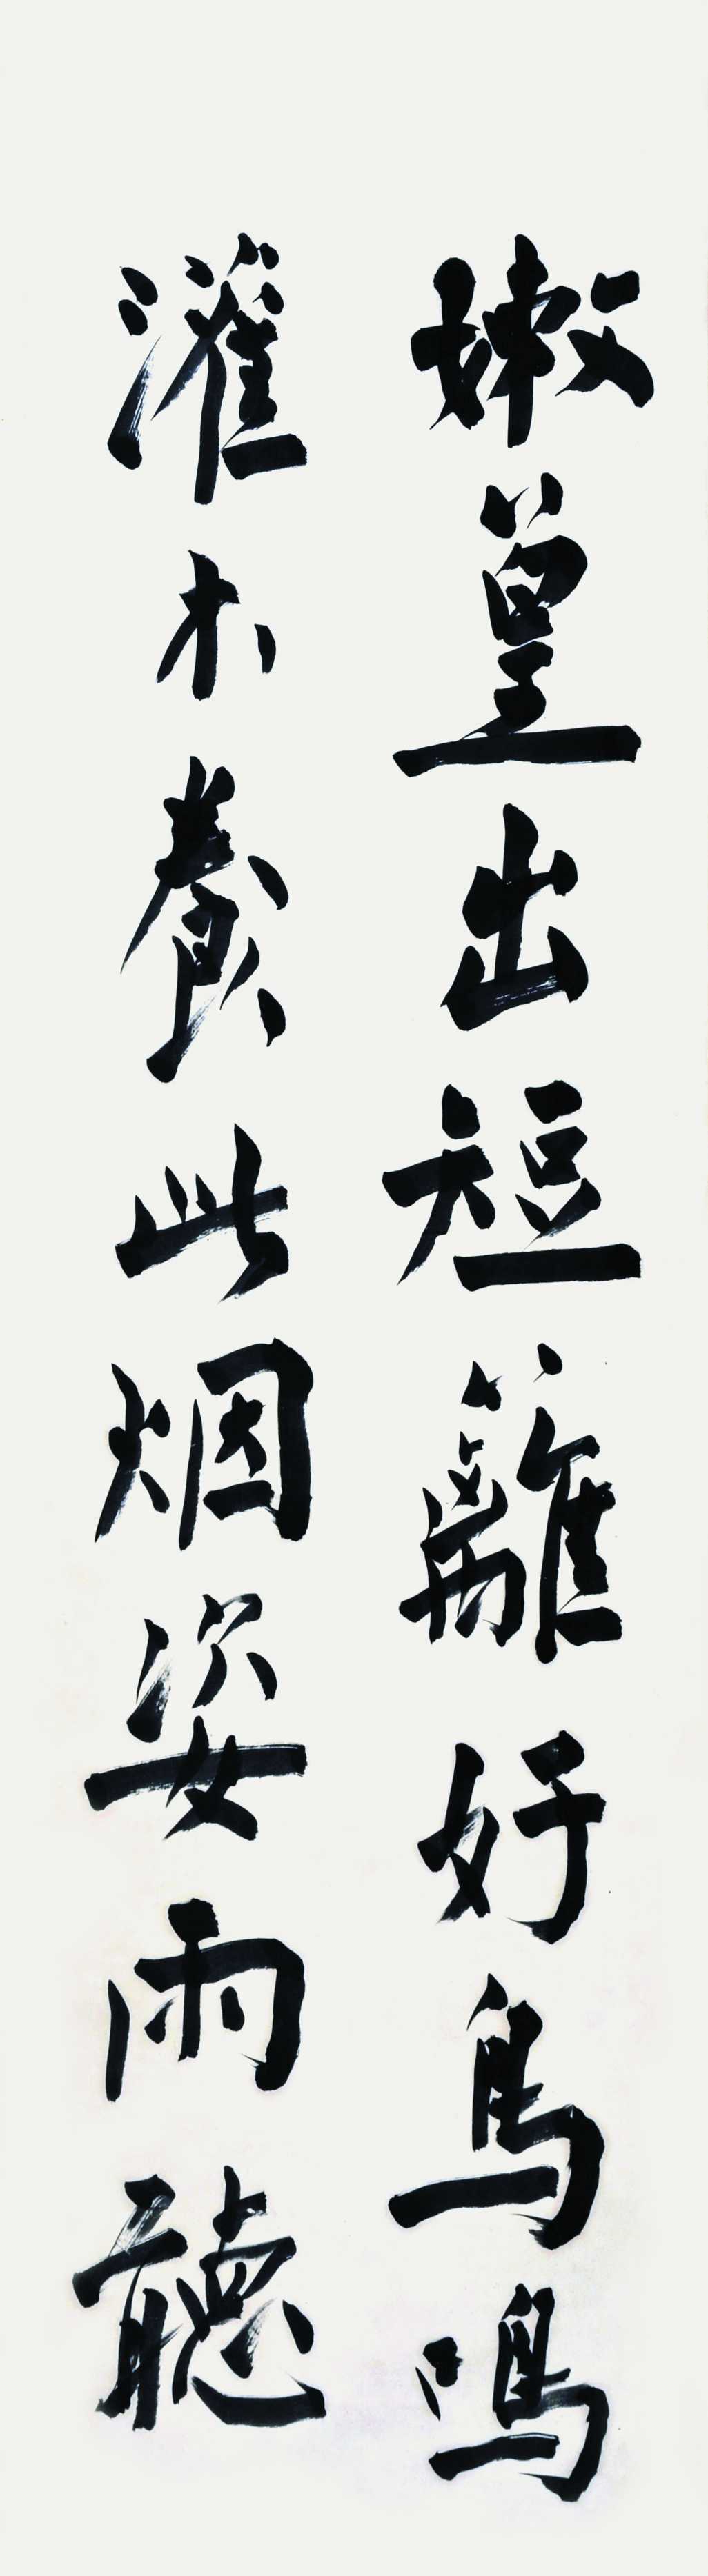 嫰篁出短籬好鳥鳴
灌木養此烟姿雨聽